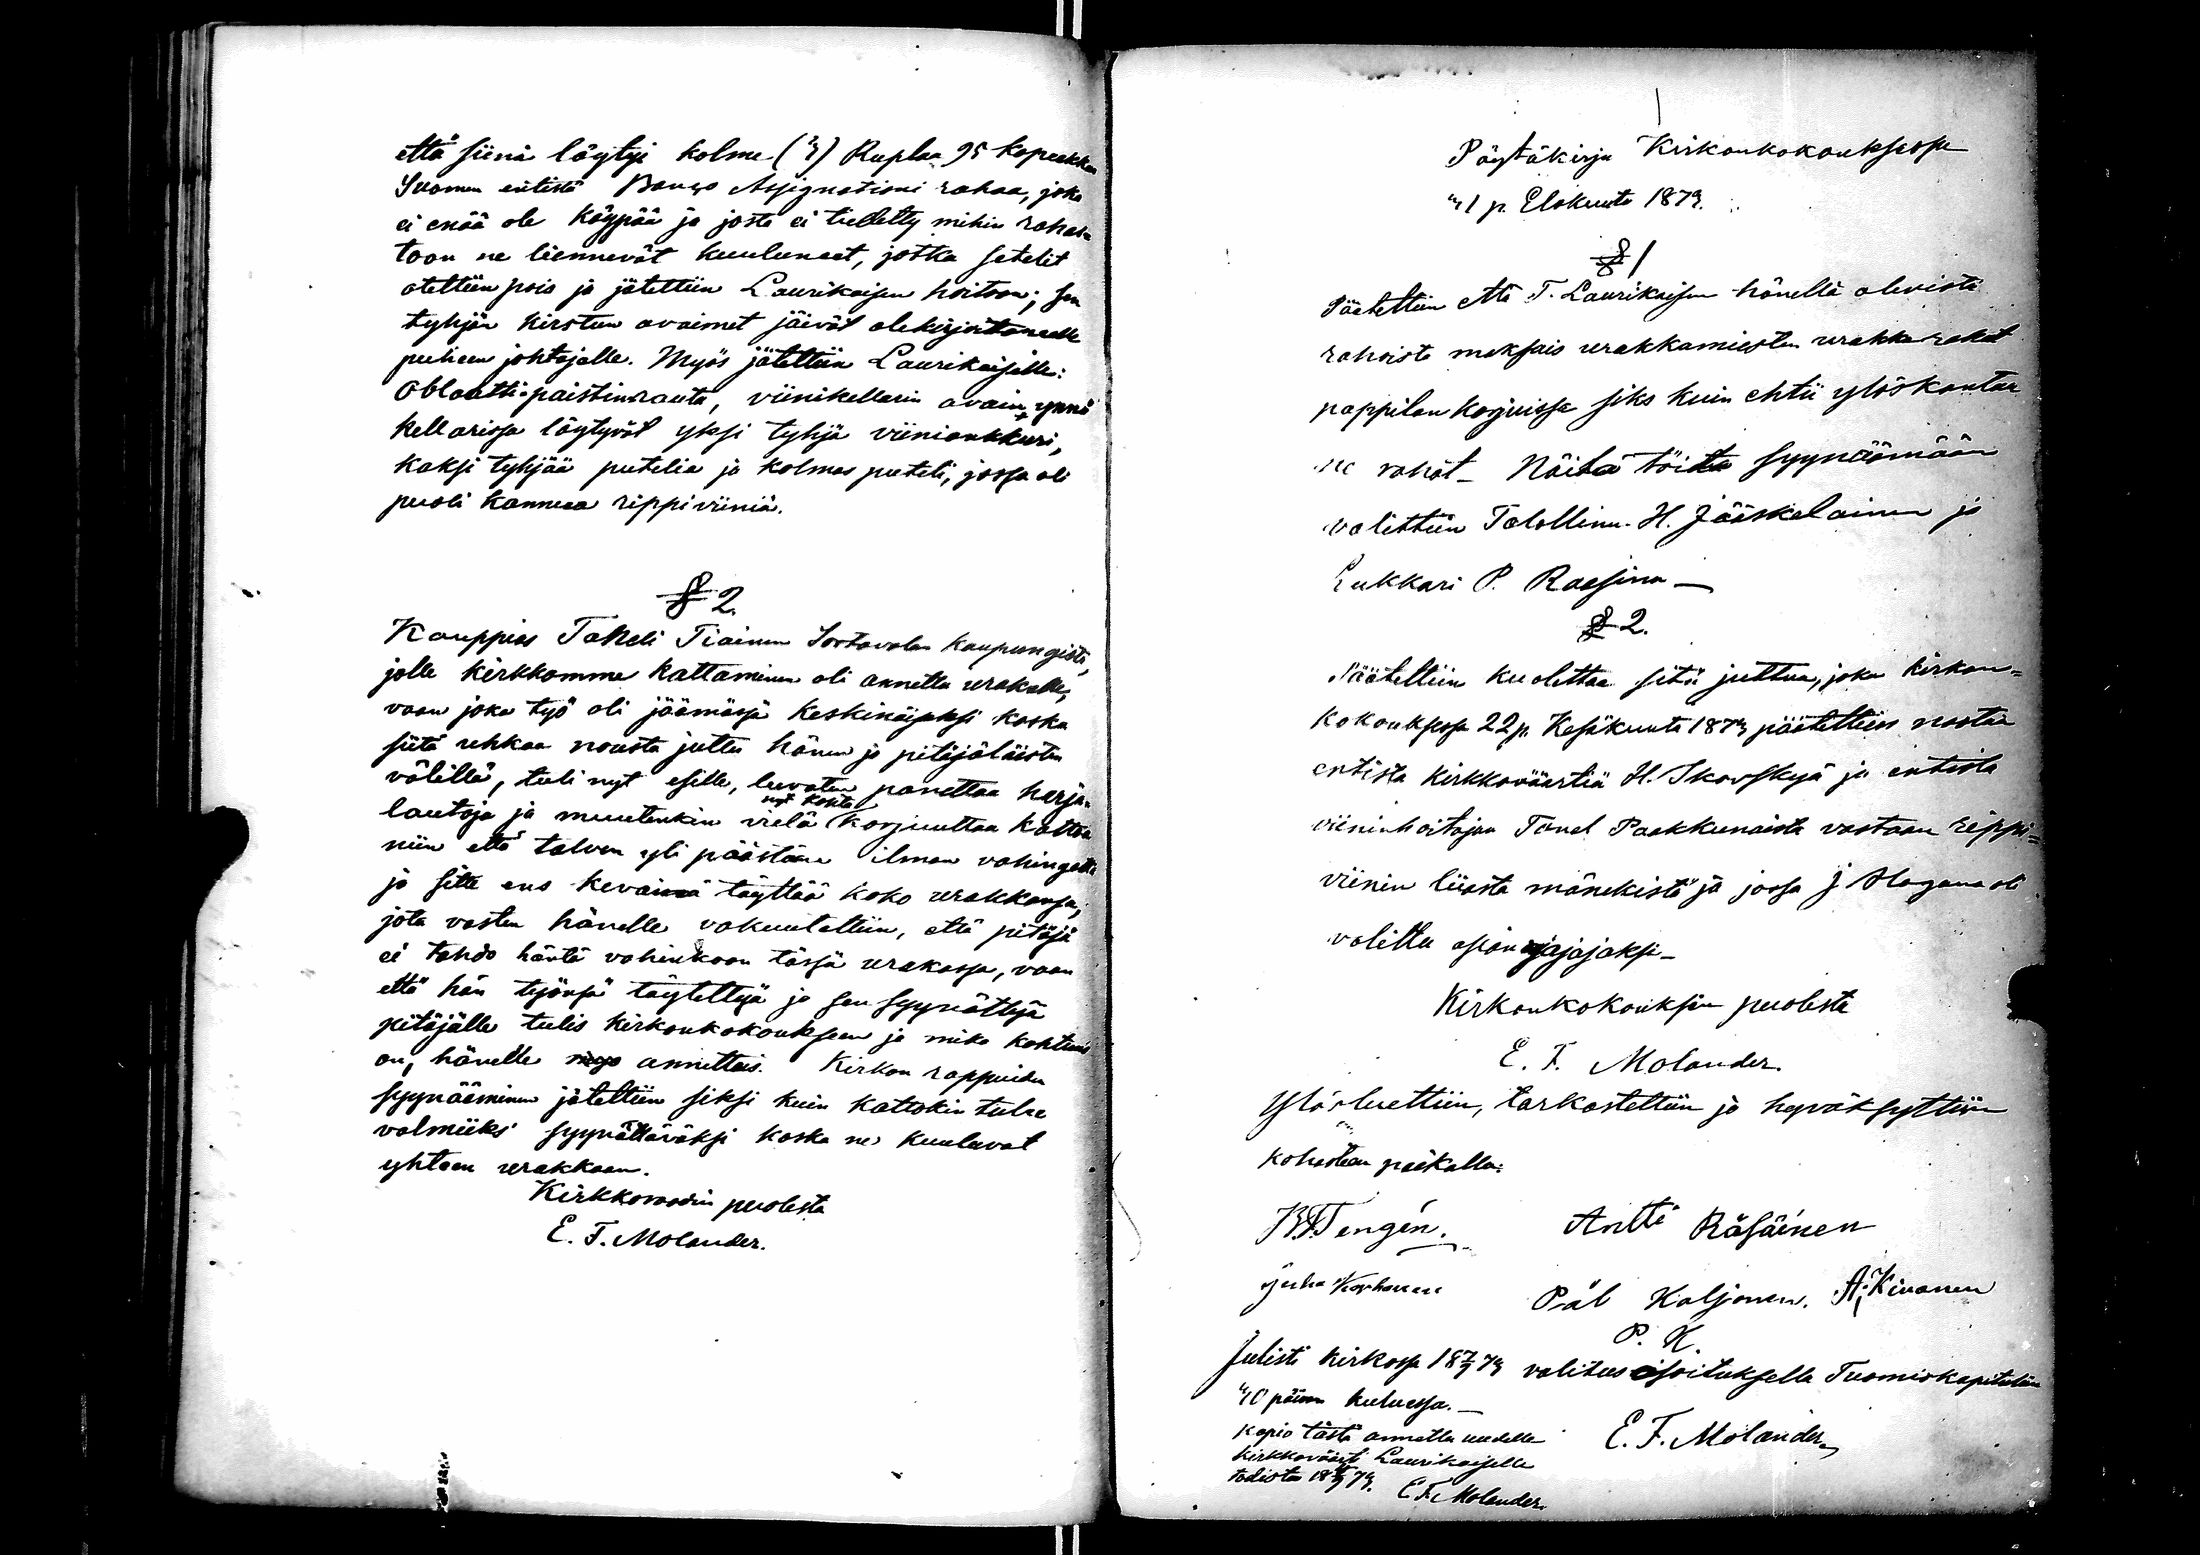 että siinä löytyi kolme (3) Ruplaa 95 kopeekkaa
Suomen entistä Banco Assignationi rahaa, joka
ei enää ole käypää ja josta ei tiedetty mihin rahas-
toon ne liennevät kuuluneet, jotka setelit
otettiin pois ja jätettiin Laurikaisen hoitoon; sen
tyhjän kirstun avaimet jäivät alekirjoitaneelle
puheen johtajalle. Myös jätettiin Laurikaiselle:
Oblaatti-paistinrauta, viinikellarin avain, ynnä
kellarissa löytyvät yksi tyhjä viiniankkuri,
kaksi tyhjää putelia ja kolmas puteli, jossa oli
puoli kannua rippiviiniä.
§ 2.
Kauppias Taneli Tiainen Sortavalan kaupungista,
jolle kirkkomme kattaminen oli annettu urakalle,
vaan joka työ oli jäämässä keskinäiseksi koska
siitä uhkaa nousta juttu hänen ja pitäjäläisten
välillä, tuli nyt esille, luvaten panettaa harja-
nyt kohta
lautoja ja muutenkin vielä korjuuttaa kattoa
niin että talven yli päästään ilman vahingotta
ja sitte ens keväinä täyttää koko urakkansa,
jota vasten hänelle vakuutettiin, että pitäjä
ei tahdo häntä vahinkoon tässä urakassa, vaan
että hän työnsä täytettyä ja sen syynättyä
pitäjälle tulis kirkonkokoukseen ja mikä kohtuus
on, hänelle annettais. Kirkon rappuiden
syynääminen jätettiin siksi kuin kattokin tulee
valmiiksi syynättäväksi koska ne kuuluvat
yhteen urakkaan.
Kirkkoraadin puolesta
E. F. Molander.
Pöytäkirja Kirkonkokouksessa
31 p. Elokuuta 1879.
§ 1
Päätettiin että T. Laurikaisen hänellä olevista
rahoista maksais urakkamiesten urakka rahat
pappilan korjuissa siks kuin ehtii ylöskantaa
ne rahat _ Näitä töitä syynäämään
valittiin Talollinen H. Jääskelainen ja
Lukkari P. Raesina _
§ 2.
Päätettiin kuolettaa sitä juttua, joka kirkon-
kokouksessa 22 p. Kesäkuuta 1879 päätettiin nostaa
entista kirkkoväärtiä H. Ikovskyä ja entista
viininhoitajaa Tanel Paakkunaista vastaan rippi-
viinin liiasta mänekistä ja jossa J Hagana oli
valittu asianajajaksi _
Kirkonkokouksen puolesta
E. F. Molander.
Ylösluettiin, tarkastettiin ja hyväksyttiin
kohastaan paikalla:
Antti Räsäinen
Juha Korhonen Pål Kaljonen. A. Kivonen
P. K.
Julisti kirkossa 18 7/9 79 valitus osoituksella Tuomiokapituliin
30 päivän kuluessa. _
Kapio tästä annettu uudelle
Kirkkoväärt Laurikaiselle
todistaa E. F. Molander.
E. F. Molander.